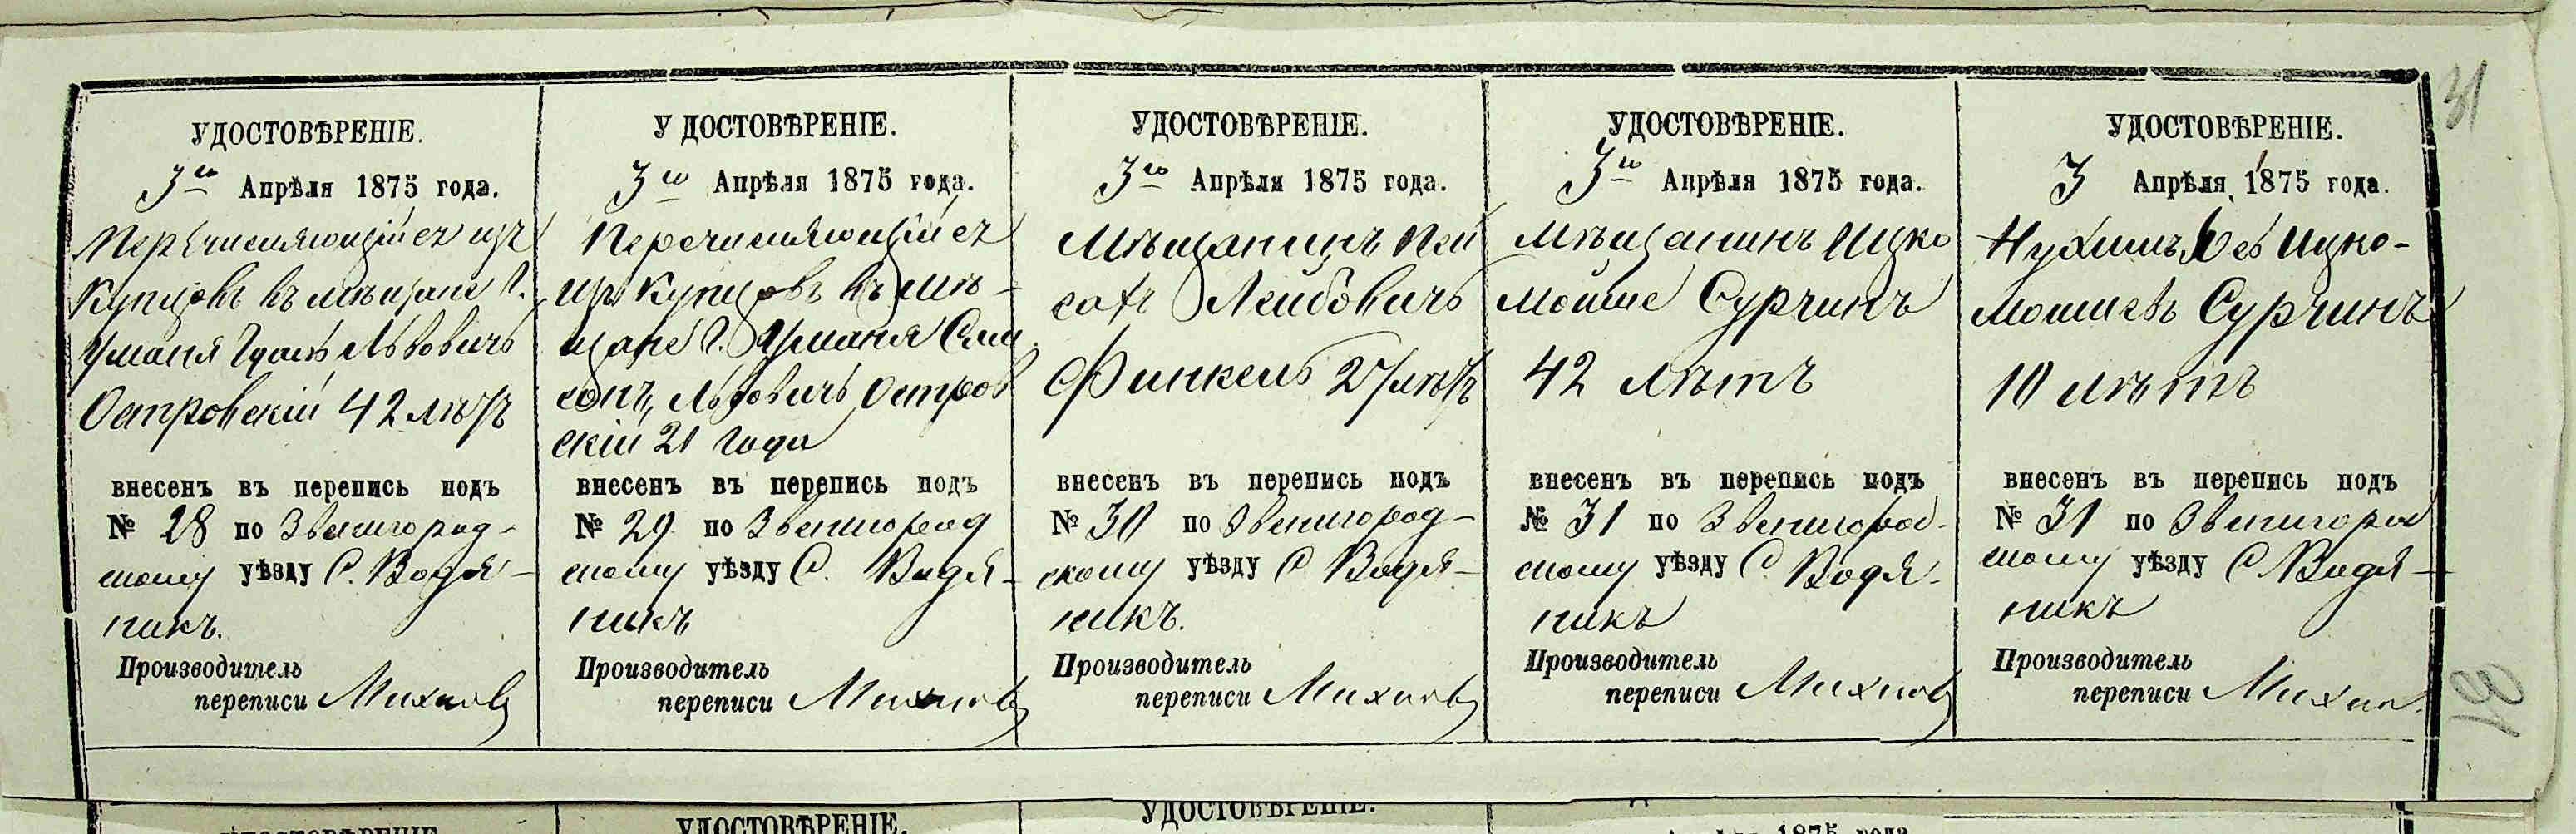 31
УДОСТОВѢРЕНІЕ.
3го Апрѣля 1875 года.
Перечисляющійся изъ
Купцовъ въ мѣщане г.
Уманя Львовичъ
Островскій 42 лѣтъ
внесенъ въ перепись подъ
№ 28 по Звенигород-
скому уѣзду С. Водя-
никъ.
Производитель
переписи Михнов
УДОСТОВѢРЕНІЕ.
3го Апрѣля 1875 года.
Перечисляющійся
изъ Купцовъ въ мѣ-
щане г. Уманя Сим
сонъ, Львовичъ Остров
скій 21 года
внесенъ въ перепись подъ
№ 29 по Звенигород
скому уѣзду С. Водя-
никъ
Производитель
переписи Михнов
УДОСТОВѢРЕНІЕ.
3го Апрѣля 1875 года.
Мѣщанинъ Пей
сахъ Лейбовичъ
Финкель 27 лѣтъ
внесенъ въ перепись подъ
№ 30 по Звенигород-
скому уѣзду С Водя-
никъ.
Производитель
переписи Михнов
УДОСТОВѢРЕНІЕ.
3го Апрѣля 1875 года.
Мѣщанинъ Ицко
Мошие Сурчинъ
42 лѣтъ
внесенъ въ перепись подъ
№ 31 по Звенигород-
скому уѣзду С. Водя-
никъ
Производитель
переписи Михнов
УДОСТОВѢРЕНІЕ.
3 Апрѣля 1875 года.
Нухимъ Бер Ицко-
Мошиевъ Сурчинъ
10 лѣтъ
внесенъ въ перепись подъ
№ 31 по Звенигород
скому уѣзду С Водя-
никъ
Производитель
переписи Михнов
УДОСТОВѢРЕНІЕ.
УДОСТОВѢРЕНІЕ.
УДОСТОВѢРЕНІЕ.
Апрѣля 1875 года